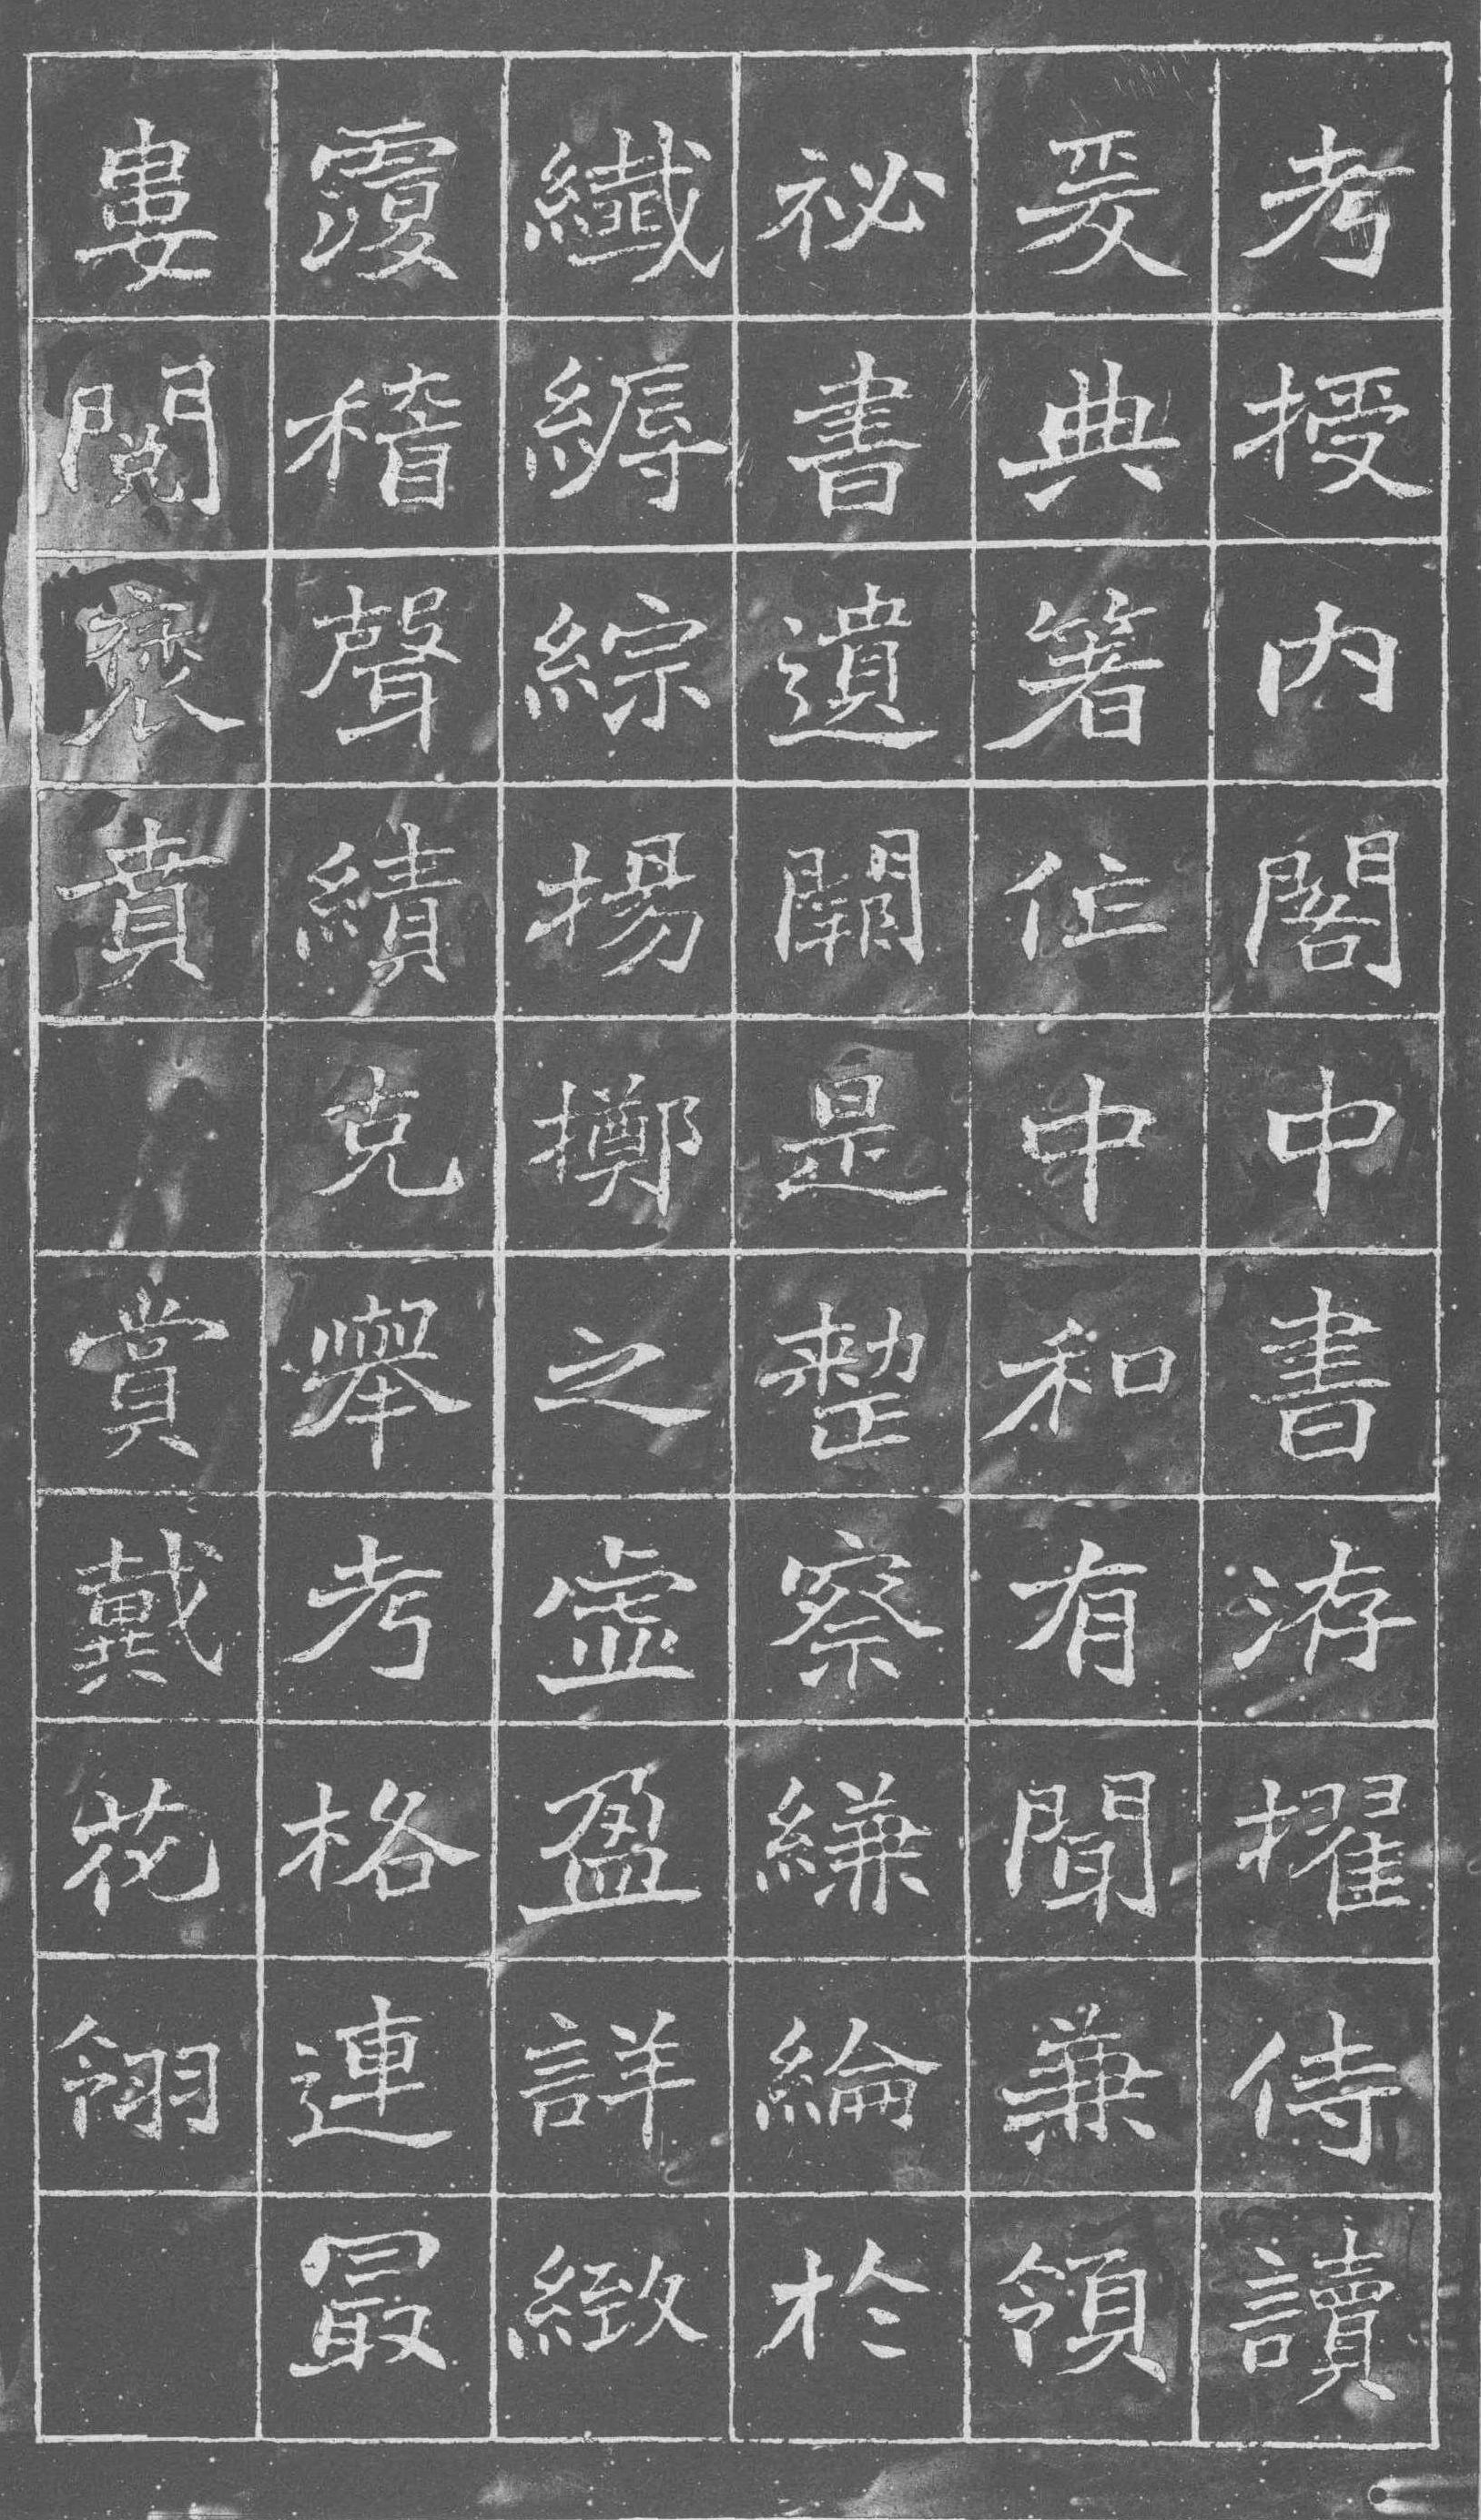 考授内閣中書洊擢侍讀
爰典箸作中和有聞兼領
祕書遺闕是整察縑綸於
纖縟綜揚擲之虛盈詳緻
覆稽聲績克舉考格連最
婁閱襃賁 賞戴花翎